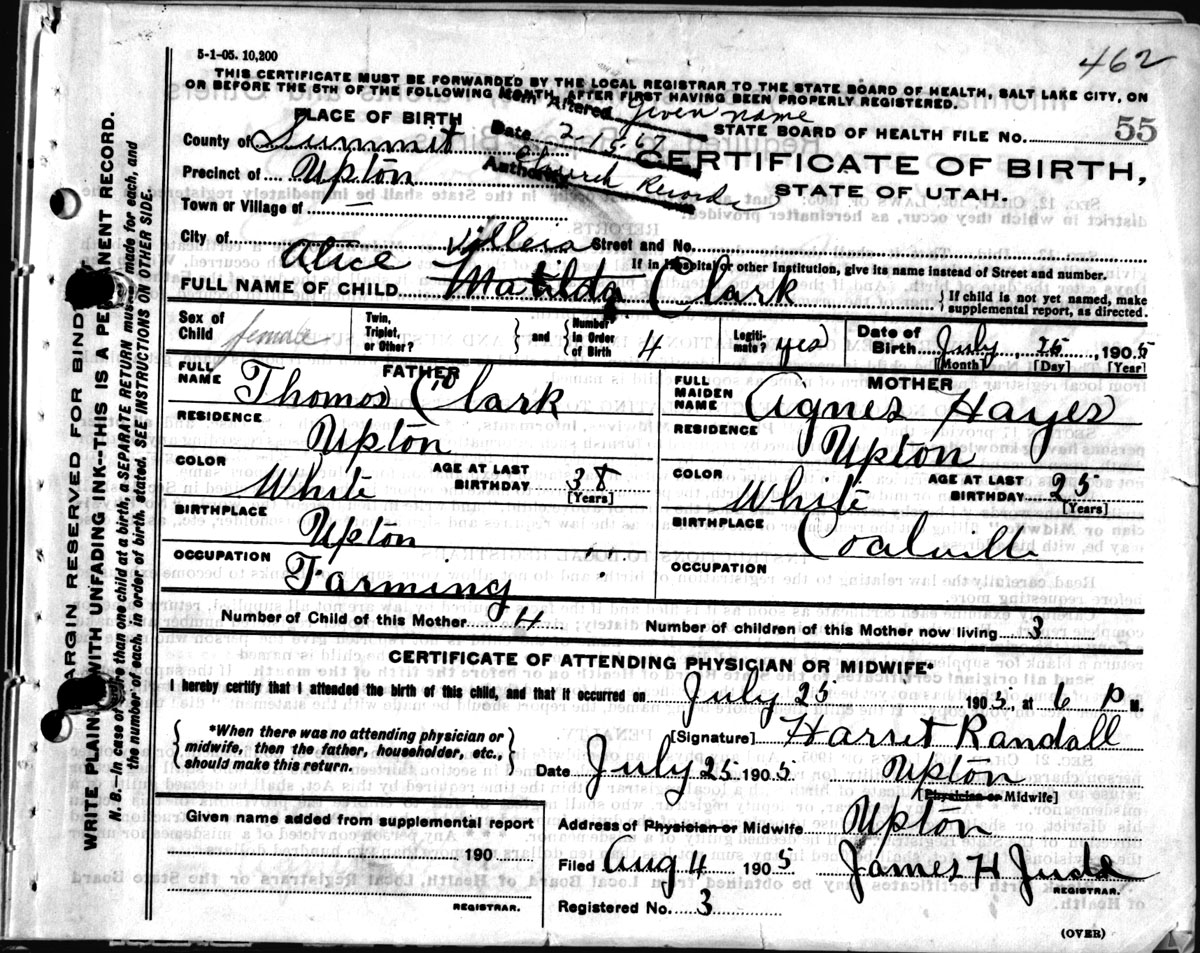 462
5-1-05. 10,200
THIS CERTIFICATE MUST BE FORWARDED BY THE LOCAL REGISTRAR TO THE STATE BOARD OF HEALTH, SALT LAKE CITY, ON
OR BEFORE THE 5TH OF THE FOLLOWING MONTH, AFTER FIRST HAVING BEEN PROPERLY REGISTERED.
Item Altered Given name
PLACE OF BIRTH
STATE BOARD OF HEALTH FILE NO. 55
County of Summit
Date 2-15-67
CERTIFICATE OF BIRTH,
Precinct of Upton
Church Records
STATE OF UTAH.
Town or Village of —
City of
Street and No.
If in Hospital or other Institution, give its name instead of Street and number.
Alice
FULL NAME OF CHILD Matilda Clark
} If child is not yet named, make supplemental report, as directed.
Sex of Child female Twin, Triplet, or Other? } and { Number in Order of Birth 4 Legitimate? yes Date of Birth July 25, 1905
[Month] [Day] [Year]
FATHER
FULL NAME Thomas Clark
MOTHER
FULL MAIDEN NAME Agnes Hayes
RESIDENCE Upton
RESIDENCE Upton
COLOR White AGE AT LAST BIRTHDAY 38 [Years]
COLOR White AGE AT LAST BIRTHDAY 25 [Years]
BIRTHPLACE Upton
BIRTHPLACE Coalville
OCCUPATION Farming
OCCUPATION
Number of Child of this Mother 4 Number of children of this Mother now living 3
CERTIFICATE OF ATTENDING PHYSICIAN OR MIDWIFE*
I hereby certify that I attended the birth of this child, and that it occurred on July 25 1905, at 6 P M.
{ *When there was no attending physician or midwife, then the father, householder, etc., should make this return. }
[Signature] Harriet Randall
Date July 25 1905 Upton
[Physician or Midwife]
Given name added from supplemental report
190
REGISTRAR.
Address of Physician or Midwife Upton
Filed Aug 4 1905 James H Judd
REGISTRAR.
Registered No. 3
(OVER)
MARGIN RESERVED FOR BINDING
WRITE PLAINLY WITH UNFADING INK--THIS IS A PERMANENT RECORD.
N. B.--In case of more than one child at a birth, a SEPARATE RETURN must be made for each, and
the number of each, in order of birth, stated. SEE INSTRUCTIONS ON OTHER SIDE.